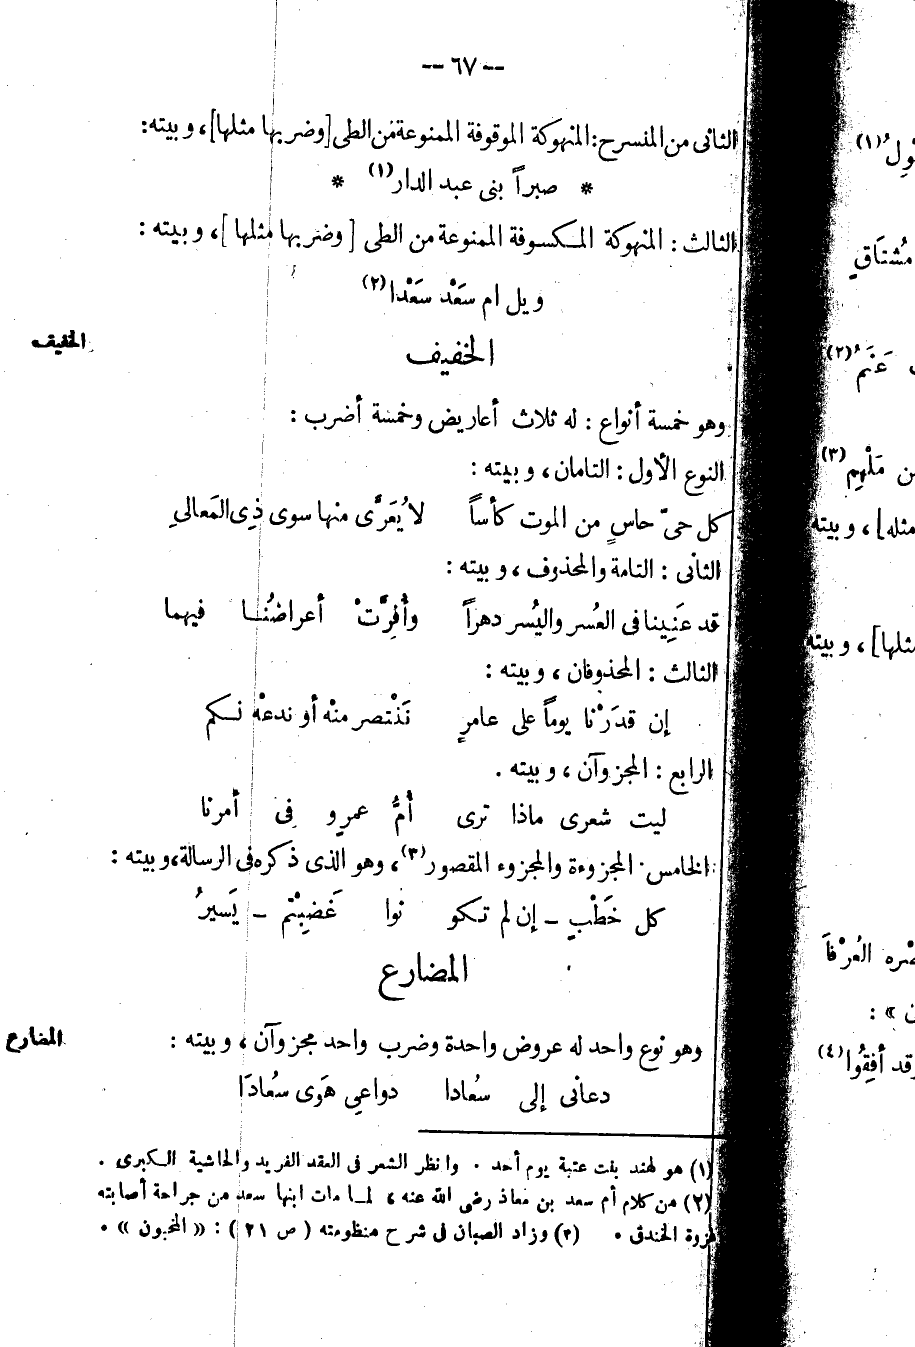 -- ٦٧ --
الثانى من المنسرح: المنهوكة الموقوفة الممنوعة من الطى [وضربها مثلها]، وبيته:
* صبراً بنى عبد الدار (١) *
الثالث : المنهوكة المكسوفة الممنوعة من الطى [ وضربها مثلها ]، وبيته :
ويل ام سَعْد سَعْدا (٢)
الخفيف
الخفيف
وهو خمسة أنواع : له ثلاث أعاريض وخمسة أضرب :
النوع الأول : التامان ، وبيته :
كل حىّ حاسٍ من الموت كأساً لا يُعَرَّى منها سوى ذِى المَعالىِ
الثانى : التامة والمحذوف ، وبيته :
قد عَنِينا فى العُسر واليُسر دهراً وأُفِرَّتْ أعراضُنا فيهما
الثالث : المحذوفان ، وبيته :
إن قدَرْنا يوماً على عامرٍ نَنْتصر منْه أو ندعْه لكم
الرابع : المجزوآن ، وبيته .
ليت شعرى ماذا ترى أمُّ عمرٍو فى أمرنا
الخامس : المجزوءة والمجزوء المقصور (٣)، وهو الذى ذكره فى الرسالة، وبيته :
كل خَطْبٍ ــ إن لم تكو نوا غَضِبْتم ــ يَسيرُ
المضارع
المضارع
وهو نوع واحد له عروض واحدة وضرب واحد مجزوآن ، وبيته :
دعانى إلى سُعادا دواعىِ هَوى سُعادَا
(١) هو لهند بنت عتبة يوم أحد . وانظر الشعر فى العقد الفريد والحاشية الكبرى .
(٢) من كلام أم سعد بن معاذ رضى الله عنه ، لما مات ابنها سعد من جراحة أصابته
غزوة الخندق . (٣) وزاد الصبان فى شرح منظومته ( ص ٢١ ) : « المخبون » .
(١)
مُشتَاقِ
عَنَمُ (٢)
من مَلْهِمِ (٣)
مثله] ، وبيته
مثلها] ، وبيته
العُرْفَا
« :
وقد أفِقُوا (٤)